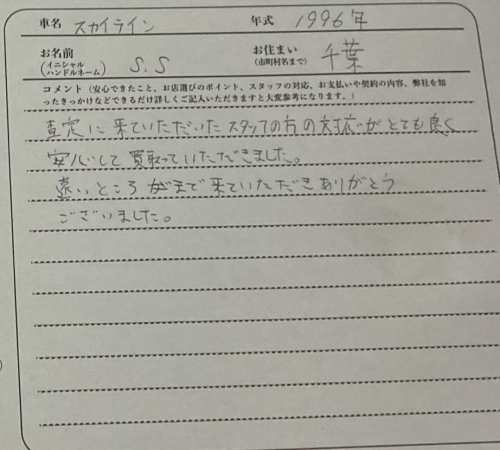 車名 スカイライン 年式 1996年
お名前 (イニシャル ハンドルネーム) S.S お住まい (市町村名まで) 千葉
コメント(安心できたこと、お店選びのポイント、スタッフの対応、お支払いや契約の内容、弊社を知
ったきっかけなどできるだけ詳しくご記入いただきますと大変参考になります。)
査定に来ていただいたスタッフの方の対応がとても良く
安心して買取っていただきました。
遠いところまで来ていただきありがとう
ございました。